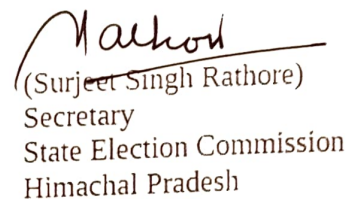 Rathore
(Surjeet Singh Rathore)
Secretary
State Election Commission
Himachal Pradesh